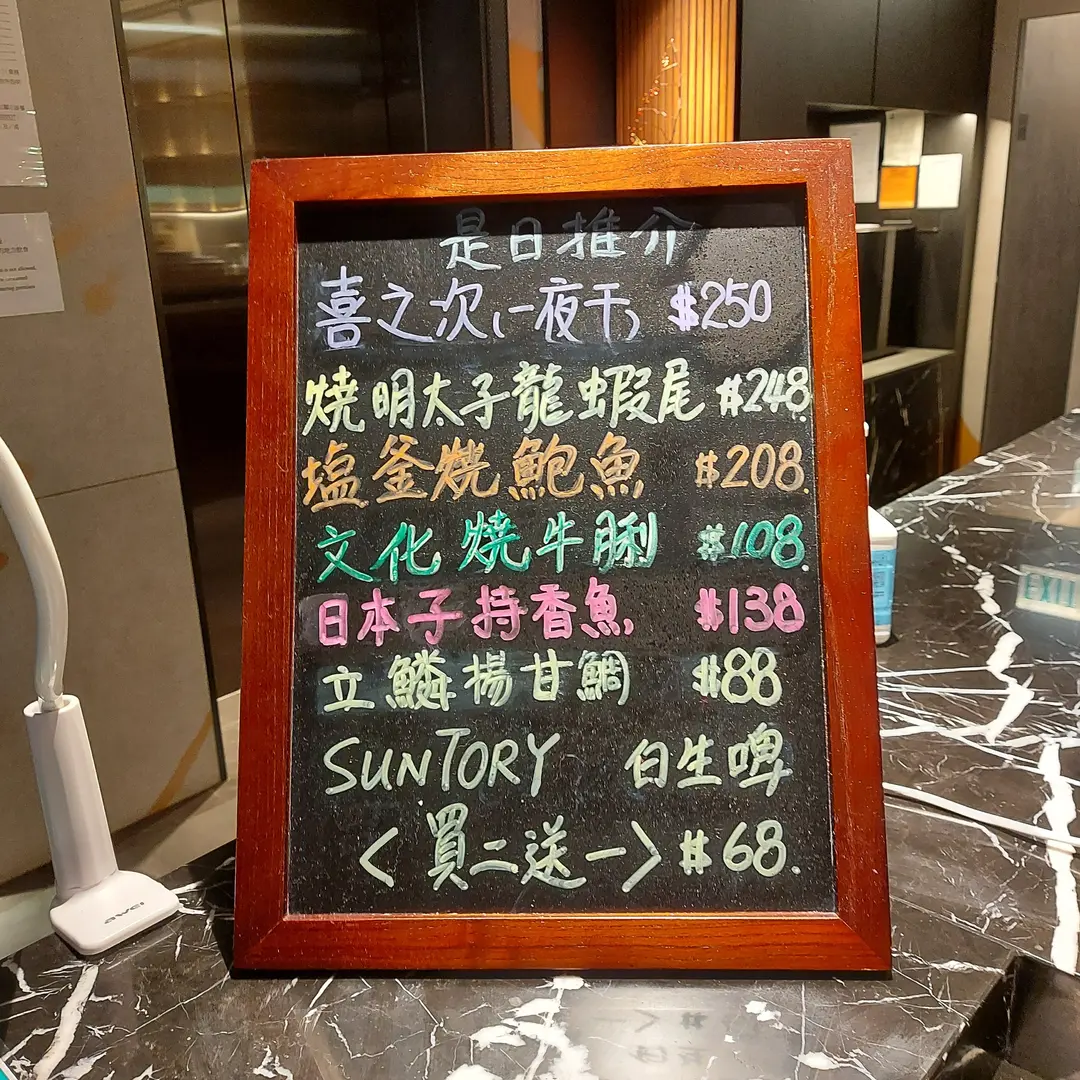 是日推介
喜之次(一夜干) $250
燒明太子龍蝦尾 $248.
塩釜燒鮑魚 $208.
文化燒牛脷 $108.
日本子持香魚 $138
立鱗揚甘鯛 $88
SUNTORY 白生啤
<買二送一> $68.
EXIT
awei